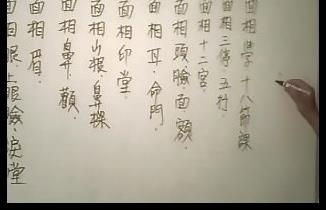 面相學十八節課
面相三停.五行.
面相十二宮.
面相頭臉.面額.
面相耳.命門.
面相印堂.
面相山根.鼻樑
面相鼻.顴.
面相眉.
面相眼.眼瞼.淚堂